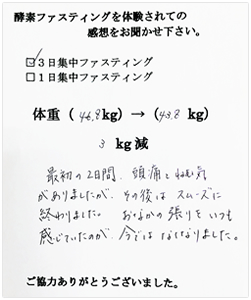 酵素ファスティングを体験されての
感想をお聞かせ下さい。
☑3日集中ファスティング
□1日集中ファスティング
体重（46.8kg）→（43.8 kg）
3 kg減
最初の2日間、頭痛と眠気
がありましたが、その後はスムーズに
終わりました。おなかの張りをいつも
感じていたのが、今ではなくなりました。
ご協力ありがとうございました。